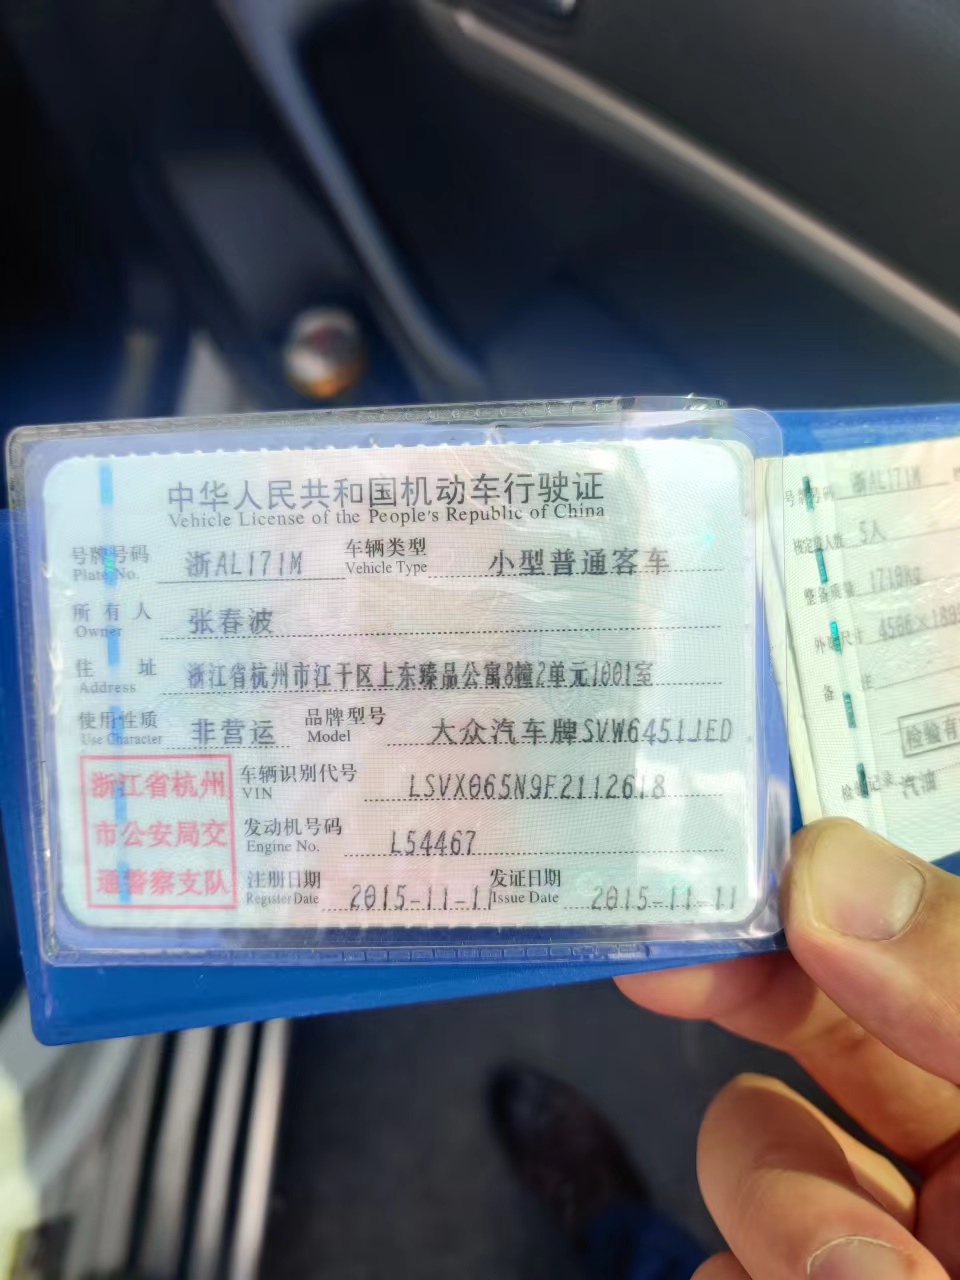 中华人民共和国机动车行驶证
Vehicle License of the People's Republic of China
号牌号码 浙AL171M 车辆类型 小型普通客车
Plate No. Vehicle Type
所有人 张春波
Owner
住址 浙江省杭州市江干区上东臻品公寓8幢2单元1001室
Address
使用性质 非营运 品牌型号 大众汽车牌SVW6451JED
Use Character Model
浙江省杭州
市公安局交
通警察支队
车辆识别代号 LSVX065N9F2112618
VIN
发动机号码 L54467
Engine No.
注册日期 2015-11-11 发证日期 2015-11-11
Register Date Issue Date
号牌号码 浙AL171M
核定载人数 5人
整备质量 1710kg
外廓尺寸
备注
检验有
检验记录 汽油